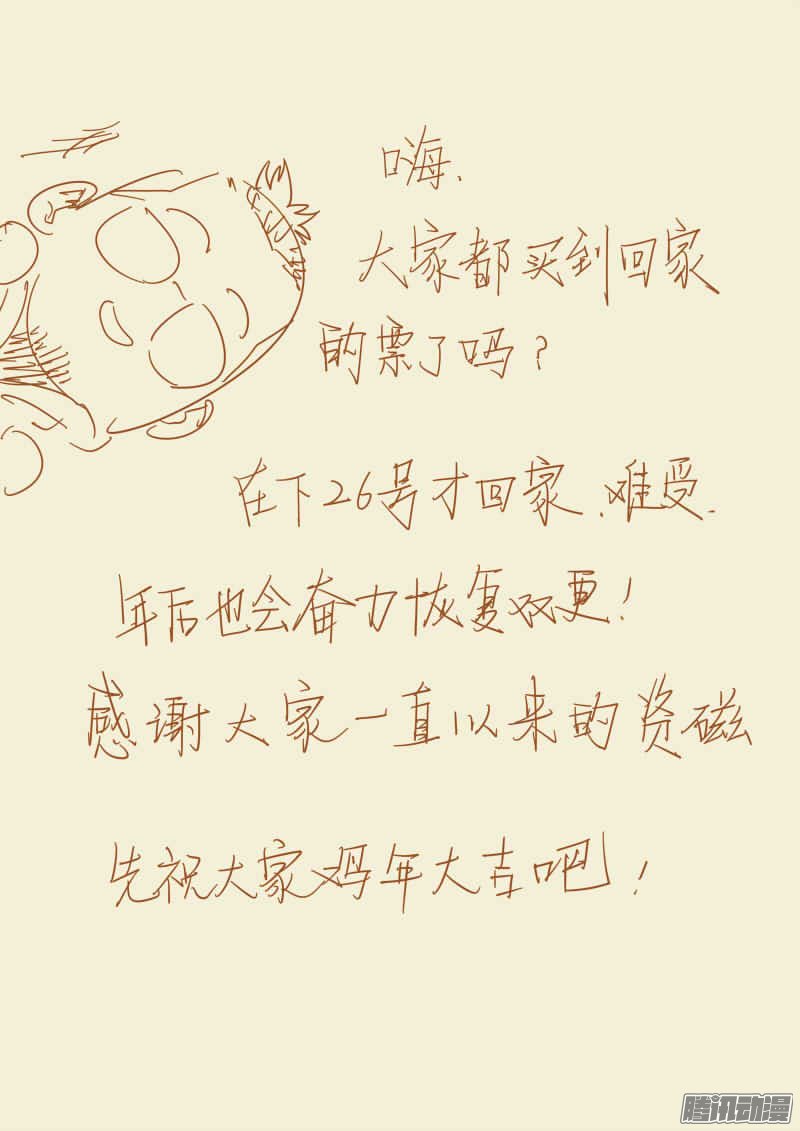 嗨.
大家都买到回家
的票了吗?
在下26号才回家.难受.
年后也会奋力恢复双更!
感谢大家一直以来的资磁
先祝大家鸡年大吉吧!
腾讯动漫